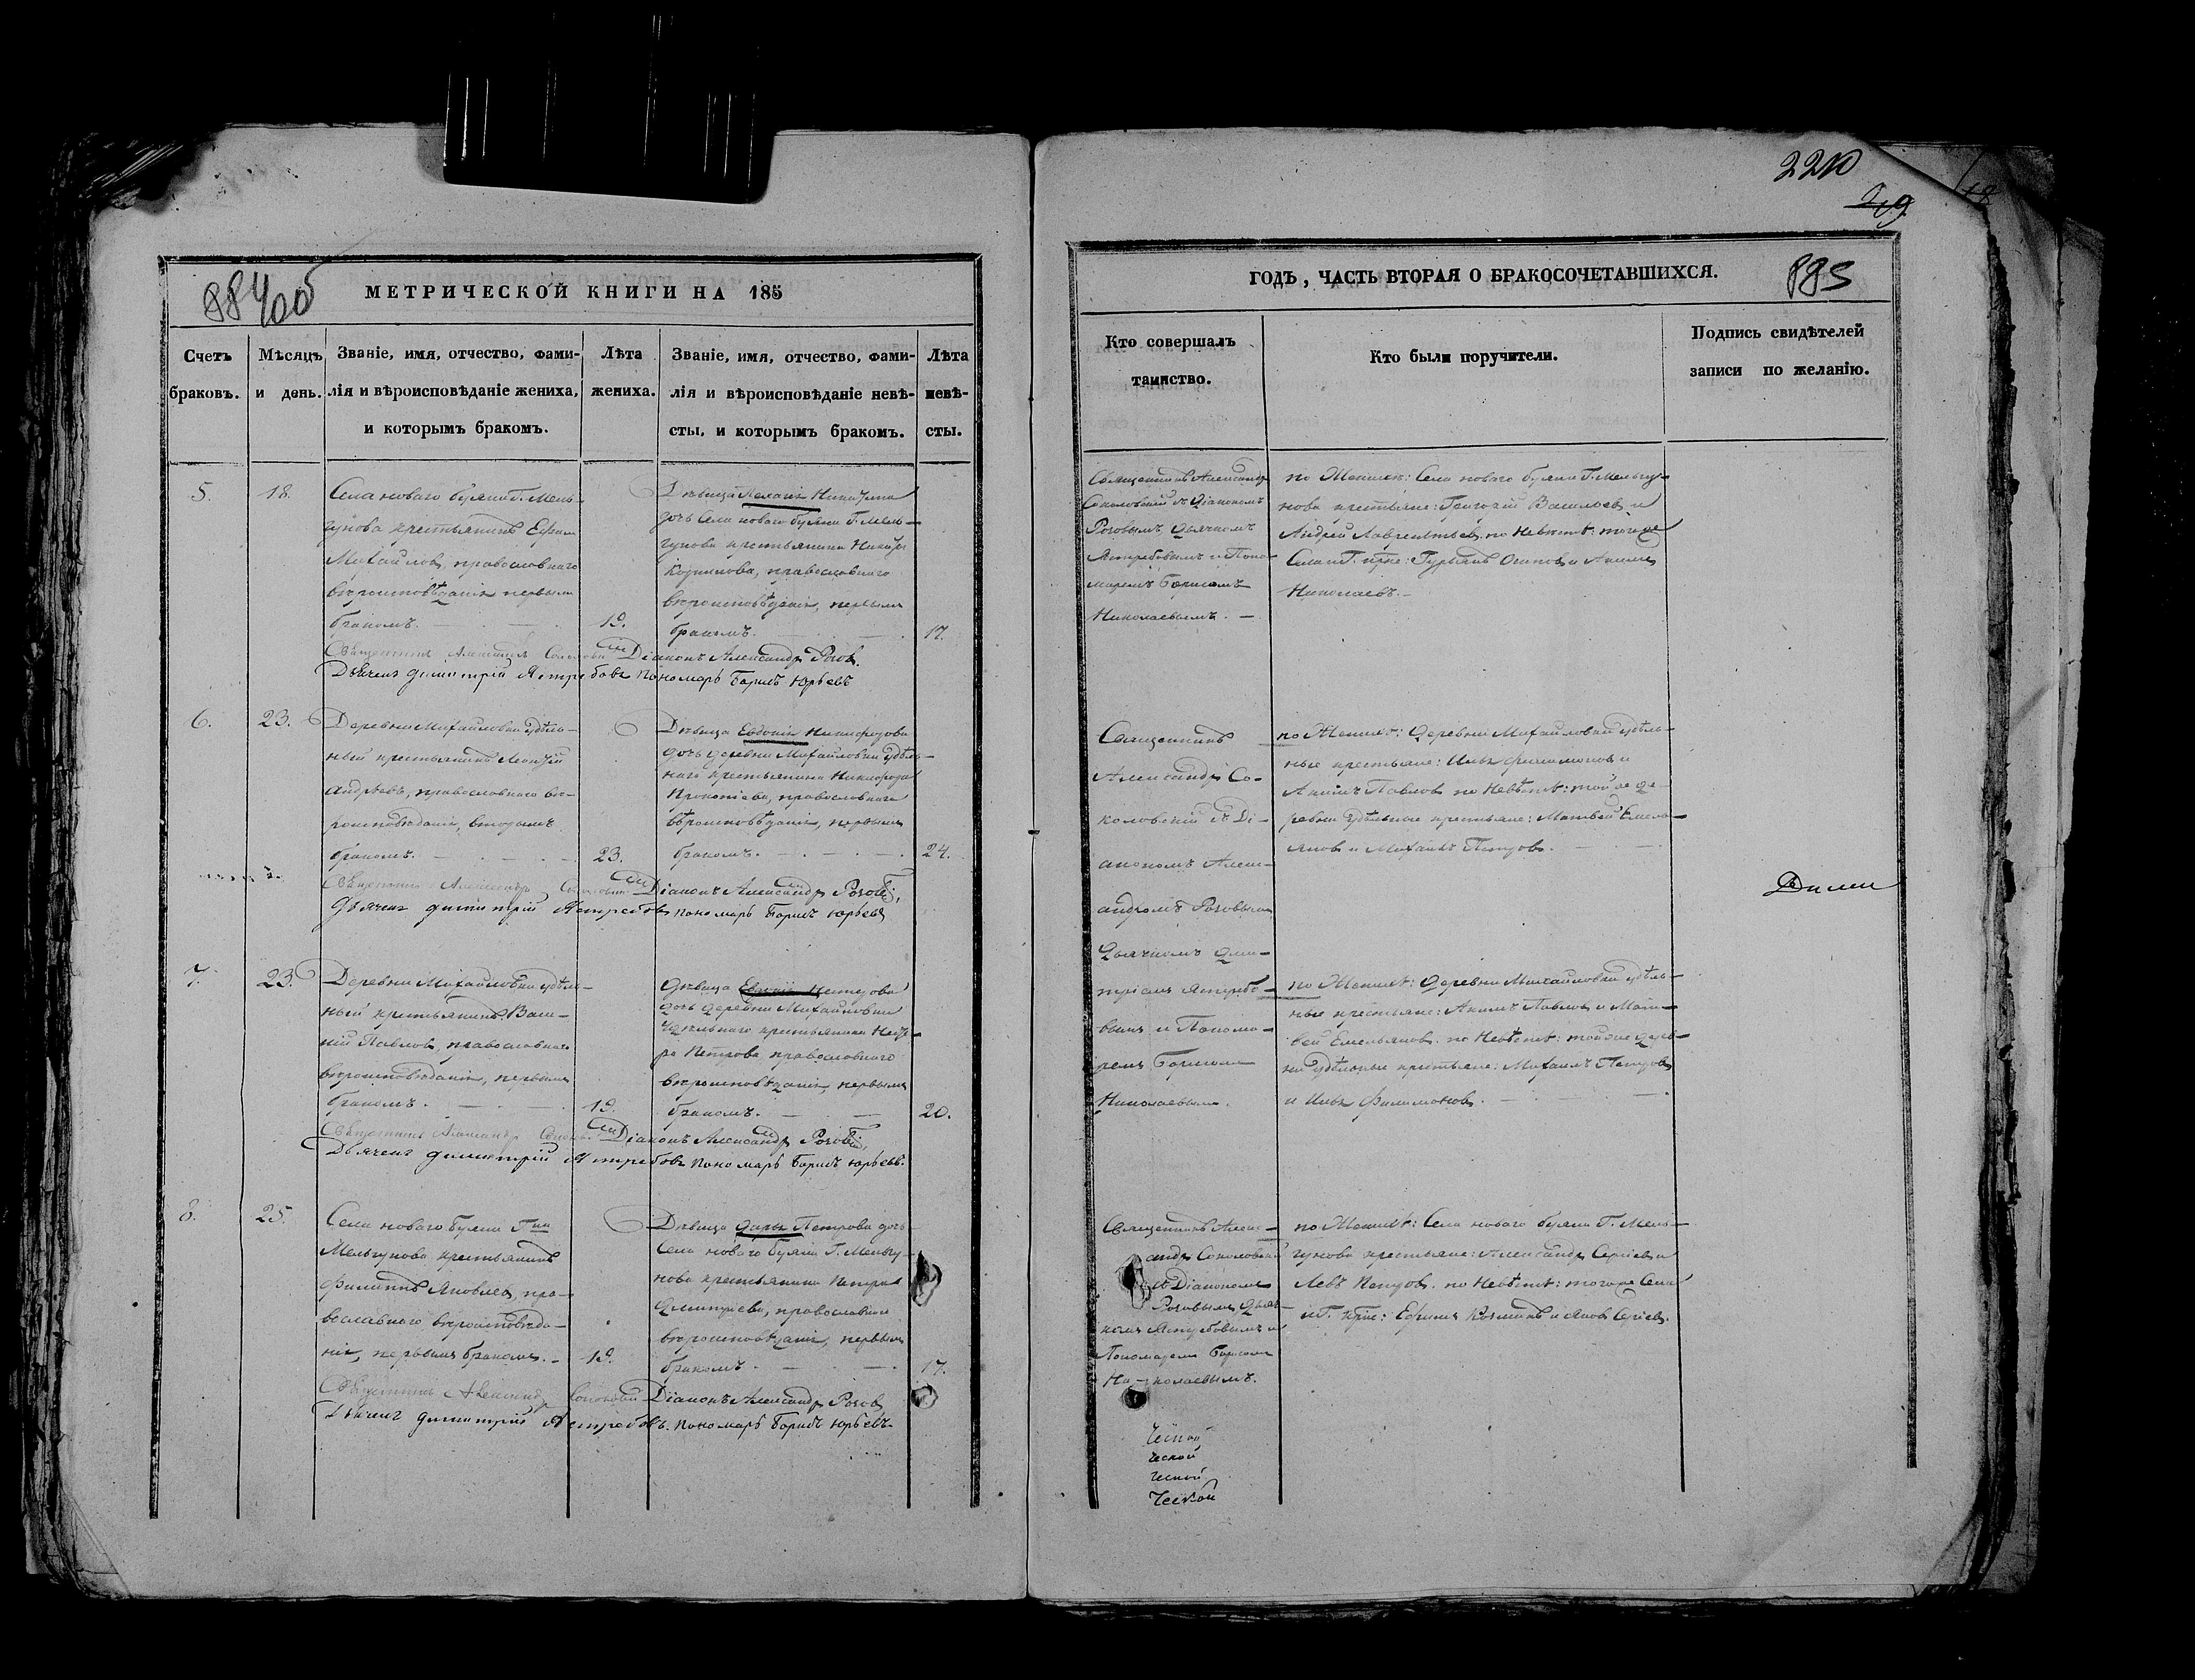 884 об
МЕТРИЧЕСКОЙ КНИГИ НА 185
Счетъ
браковъ.
Мѣсяцъ
и день.
Званіе, имя, отчество, фами-
лія и вѣроисповѣданіе жениха,
и которымъ бракомъ.
Лѣта
жениха.
Званіе, имя, отчество, фами-
лія и вѣроисповѣданіе невѣ-
сты, и которымъ бракомъ.
Лѣта
невѣ-
сты.
5.
18.
Села новаго буяна Г. Мель-
гунова крестьянинъ Ефим
Михайловъ, православнаго
вѣроисповѣданія первымъ
бракомъ.
19.
Дѣвица Пелагія Никитина
дочь Села новаго буяна Г. Мель-
гунова крестьянина Никиты
православнаго
вѣроисповѣданія, первымъ
бракомъ.
17.
Священникъ Александръ Соколовскій Діаконъ Александръ Роговъ.
Дьячекъ Димитрій Ястребовъ пономарь Борисъ Юрьевъ
6.
23.
Деревни Михайловки удѣль-
ный крестьянинъ Леонтій
Андреевъ, православнаго вѣ-
роисповѣданія, вторымъ
бракомъ.
23.
Дѣвица Евдокія Никифорова
дочь деревни Михайловки удѣль-
наго крестьянина Никифора
Прокопіева, православнаго
вѣроисповѣданія, первымъ
бракомъ.
24.
Священникъ Александръ Соколовскій Діаконъ Александръ Роговъ
Дьячекъ Димитрій Ястребовъ пономарь Борисъ Юрьевъ
7.
23.
Деревни Михайловки удѣль-
ный крестьянинъ Васи-
лій Павловъ, православнаго
вѣроисповѣданія, первымъ
бракомъ.
19.
Дѣвица Петрова
дочь деревни Михайловки
Удѣльнаго крестьянина Пет-
ра Петрова православнаго
вѣроисповѣданія, первымъ
бракомъ.
20.
Священникъ Александръ Діаконъ Александръ Роговъ
Дьячекъ Димитрій Ястребовъ пономарь Борисъ Юрьевъ.
8.
25.
Села новаго буяна Г-на
Мельгунова крестьянинъ
Филиппъ Яковлевъ, пра-
вославнаго вѣроисповѣда-
нія, первымъ бракомъ.
19.
Дѣвица Дарья Петрова дочь
Села новаго буяна Г. Мельгу-
нова крестьянина Петра
Дмитріева, православнаго
вѣроисповѣданія, первымъ
бракомъ.
17.
Священникъ Александръ Соколовскій Діаконъ Александръ Роговъ
Дьячекъ Димитрій Ястребовъ. пономарь Борисъ Юрьевъ
2210
ГОДЪ, ЧАСТЬ ВТОРАЯ О БРАКОСОЧЕТАВШИХСЯ.
885
Кто совершалъ
таинство.
Кто были поручители.
Подпись свидѣтелей
записи по желанію.
Священникъ Александръ
Соколовскій съ Діакономъ
Роговымъ Дьячкомъ
Ястребовымъ и Поно-
маремъ Борисомъ
Николаевымъ.
по Женихѣ: Села новаго буяна Г. Мельгу-
нова крестьяне: Григорій Васильевъ и
Андрей Лаврентьевъ. по Невѣстѣ: тогоже
Села и Г. крне: Гурьянъ Осиповъ и
Николаевъ.
Священникъ
Александръ Со-
коловскій съ Ді-
акономъ Алек-
сандромъ Роговымъ
Дьячкомъ Дми-
тріемъ Ястребо-
вымъ и Понома-
ремъ Борисомъ
Николаевымъ.
по Женихѣ: Деревни Михайловки удѣль-
ные крестьяне: Илья Филимоновъ и
Акимъ Павловъ по Невѣстѣ: той же де-
ревни удѣльные крестьяне: Матвей Емель-
яновъ и Михаилъ Петровъ.
по Женихѣ: Деревни Михайловки удѣль-
ные крестьяне: Акимъ Павловъ и Мат-
вей Емельяновъ. по Невѣстѣ: тойже дерев-
ни удѣльные крестьяне: Михаилъ Петровъ
и Илья Филимоновъ.
Священникъ Алекс-
андръ Соколовскій
съ Діакономъ
Роговымъ Дьяч-
комъ Ястребовымъ и
Пономаремъ Борисомъ
Николаевымъ.
по Женихѣ: Села новаго буяна Г. Мель-
гунова крестьяне: Александръ Сергіевъ и
Левъ Петровъ. по Невѣстѣ: тогоже Села
и Г. крне: Ефимъ Козминъ и Яковъ Сергіевъ.
ческой
ческой
ческой
ческой